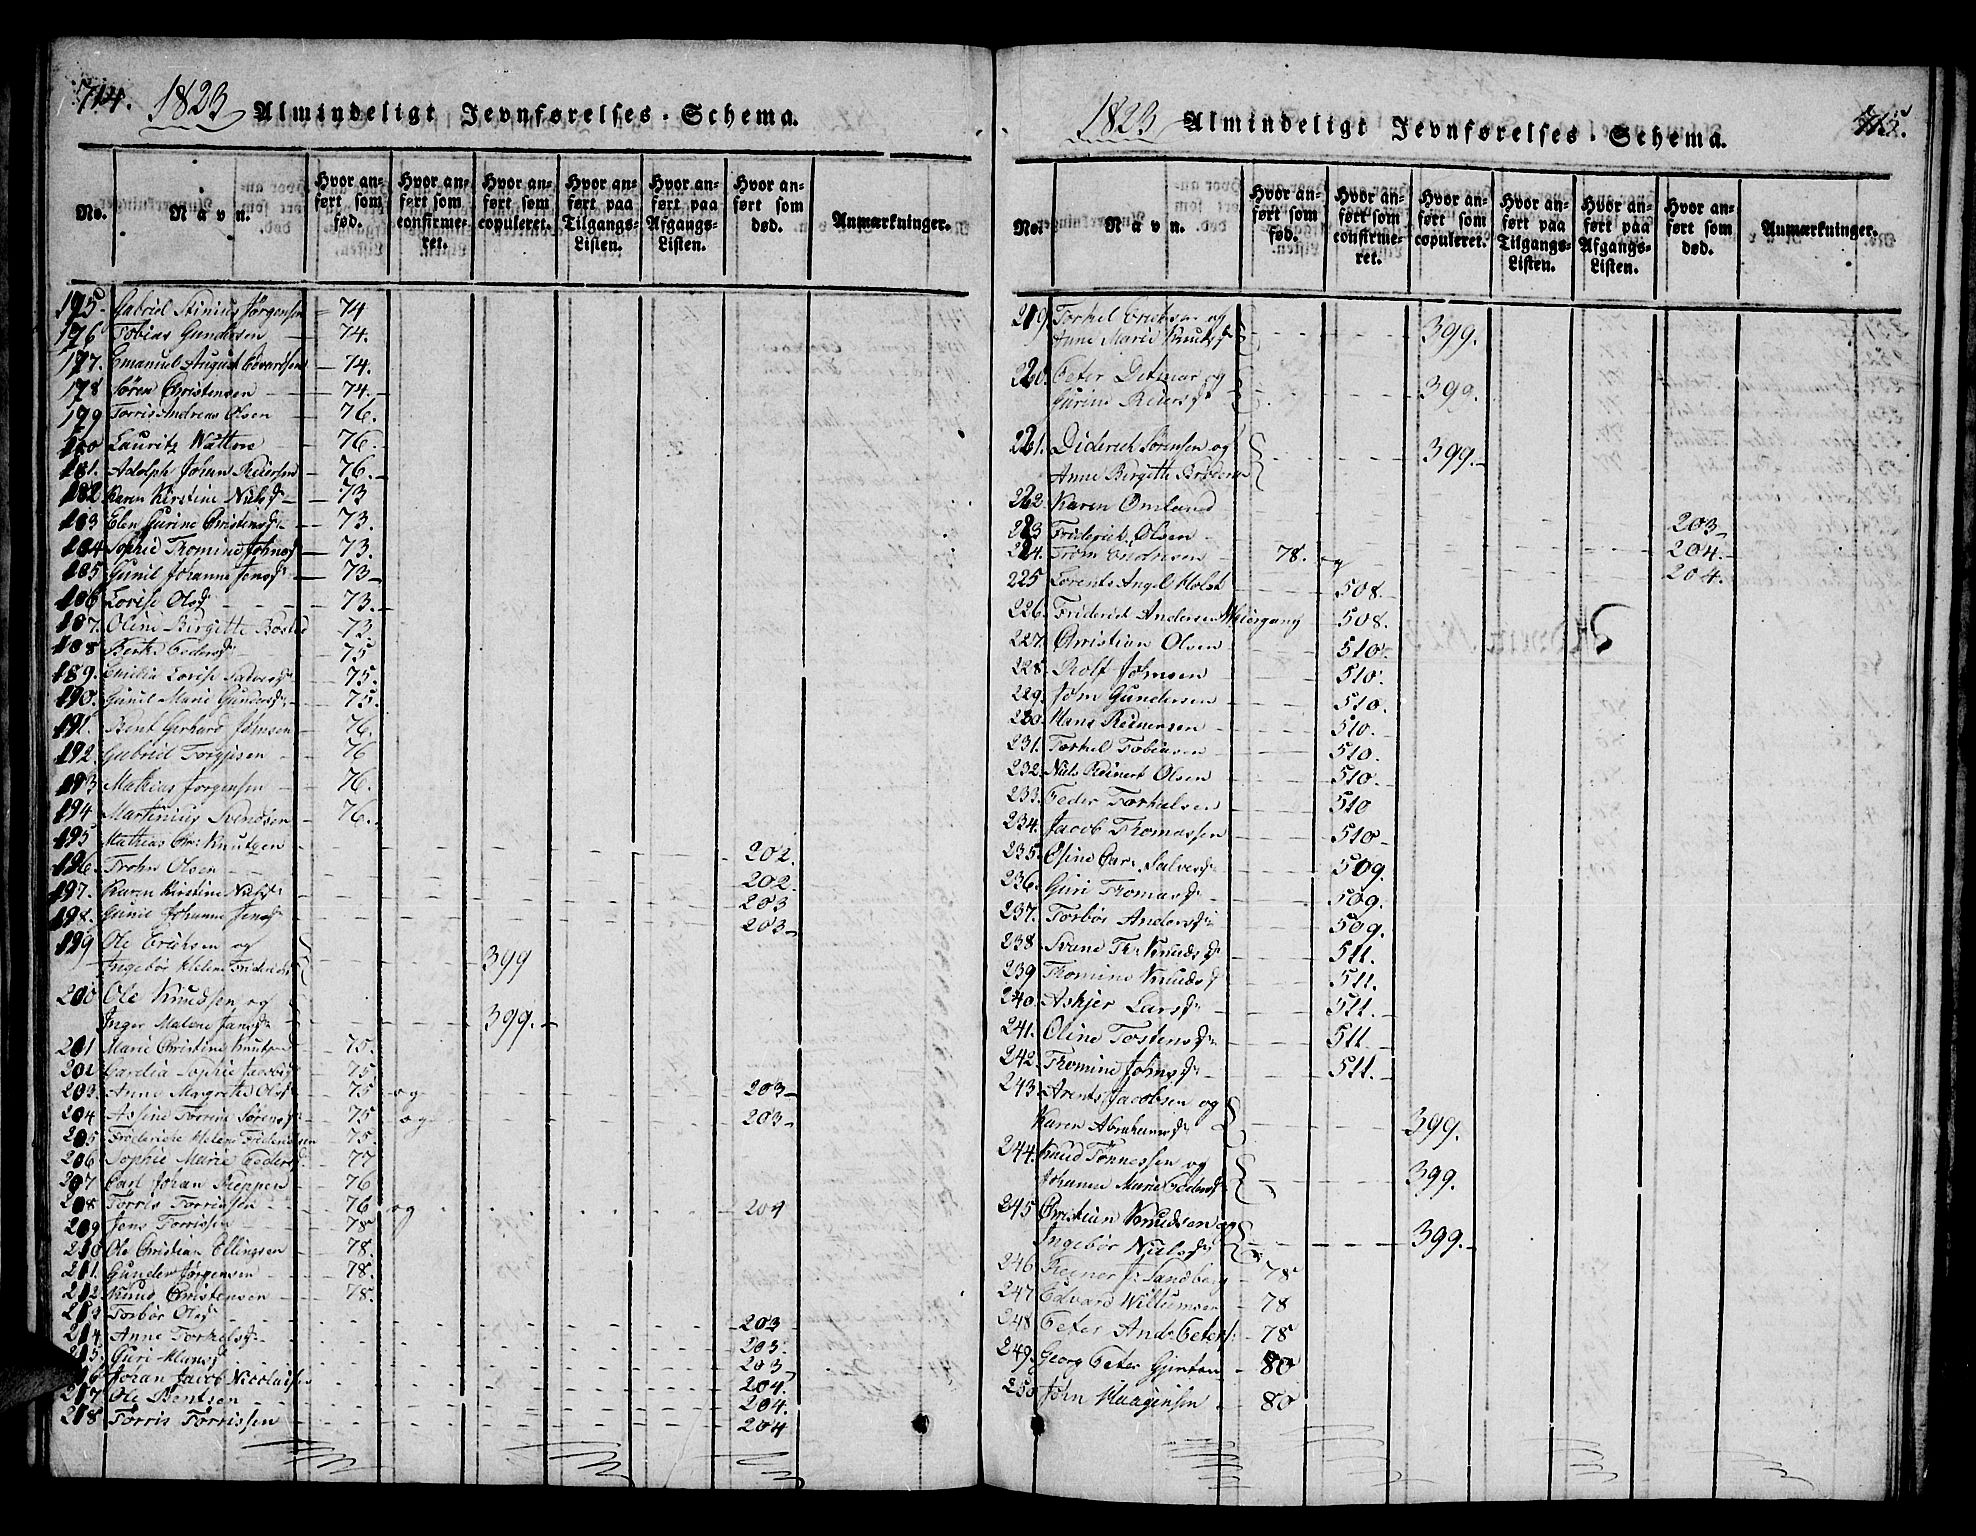 714. 1823 Almindeligt Jevnførelses-Schema.
No. Navn. Hvor anført som fød. Hvor anført som confirmeret. Hvor anført som copuleret. Hvor anført paa Tilgangs-Listen. Hvor anført paa Afgangs-Listen. Hvor anført som død. Anmærkninger.
175 Gabriel Stinius Jørgensen 74
176 Tobias Gundersen 74.
177. Emanuel August Edvardsen 74.
178 Søren Christensen 74.
179 Torris Andreas Olsen 76.
180 Lauritz 76.
181. Adolph Johan Reiersen 76.
182 Karen Kirstine Nielsd 73
183 Elen Gurine Christensd 73.
184 Sophie Thomine Johnsd 73.
185 Gunil Johanne Jensd 73
186 Lovise Olsd 73.
187. Oline Birgitte 73
188 Berthe Pedersd 75
189. Emilia Lovise Salvesd 75.
190. Gunil Marie Gundersd 75.
191. Bent Gerhard Johnsen 76.
192. Gabriel Torgjusen 76
193 Mathias Jørgensen 76.
194 Martinius Svendsen 76.
195 Mathias Chr: Knutzen 202.
196. Trohn Olsen 202
197. Karen Kirstine Nielsd 203
198. Gunil Johanne Jensd 203
199 Ole Erichsen og
Ingebør Helene Fridericksd 399
200 Ole Knudsen og
Inger Malene Jansd 399.
201 Marie Christine Knutsd 75.
202 Sophie Jacobsd 75
203. Anne Margrethe Olsd 75 og 203
204 Assine Torrine Sørensd 75 og 203
205 Frederiche Helene Fridericksen 75
206 Sophie Marie Pedersd 77
207 Carl Johan Reppen 76
208 Torris Torrissen 76 og 204
209 Jens Torrissen 78
210 Ole Christian Ellingsen 78.
211. Gunder Jørgensen 78.
212 Knud Christensen 78.
213 Torbør Olsd 203
214 Anne Torkelsd 203.
215. Guri Hansd 203
216 Johan Jacob Nicolaisen 204.
217 Ole Bentsen 204.
218 Torris Torrissen 204
1823 Almindeligt Jevnførelses-Schema. 715.
No. Navn. Hvor anført som fød. Hvor anført som confirmeret. Hvor anført som copuleret. Hvor anført paa Tilgangs-Listen. Hvor anført paa Afgangs-Listen. Hvor anført som død. Anmærkninger.
219 Torkel Erichsen og
Anne Marie Knutsd 399.
220. Peter Ditmar og
Gurine Reiersd 399.
221. Diderich Sørensen og
Anne Birgitte 399.
222 Karen Omland 203
223 Friderich Olsen 204.
224. Trohn 78. og 204.
225 Lorents Angel Holst 508.
226. Friderich Andersen 508.
227. Christian Olsen 510.
228. Rolf Johnsen 510.
229. John Gundersen 510.
230. Hans Reiersen 510.
231. Torkel Tobiasen 510.
232. Niels Reinert Olsen 510.
233. Peder Torkelsen 510
234. Jacob Thomassen 510
235. Oline Car: Salvesd 509.
236. Guri Thomasd 509.
237. Torbør Andersd 509.
238 Svane Th: Knudsd 511.
239 Thomine Knudsd 511.
240. Askjer Larsd 511.
241. Oline Tostensd 511
242. Thomine Johnsd 511.
243 Arents Jacobsen og
Karen Abrahamsd 399.
244. Knud Tønnessen og
Johanne Marie Pedersd 399.
245 Christian Knudsen og
Ingebør Nielsd 399.
246 Reiner J: Sandberg 78
247 Edvard Willumsen 78
248 Peter And: Peters: 78
249. Georg Peter 80
250 John Haagensen 80